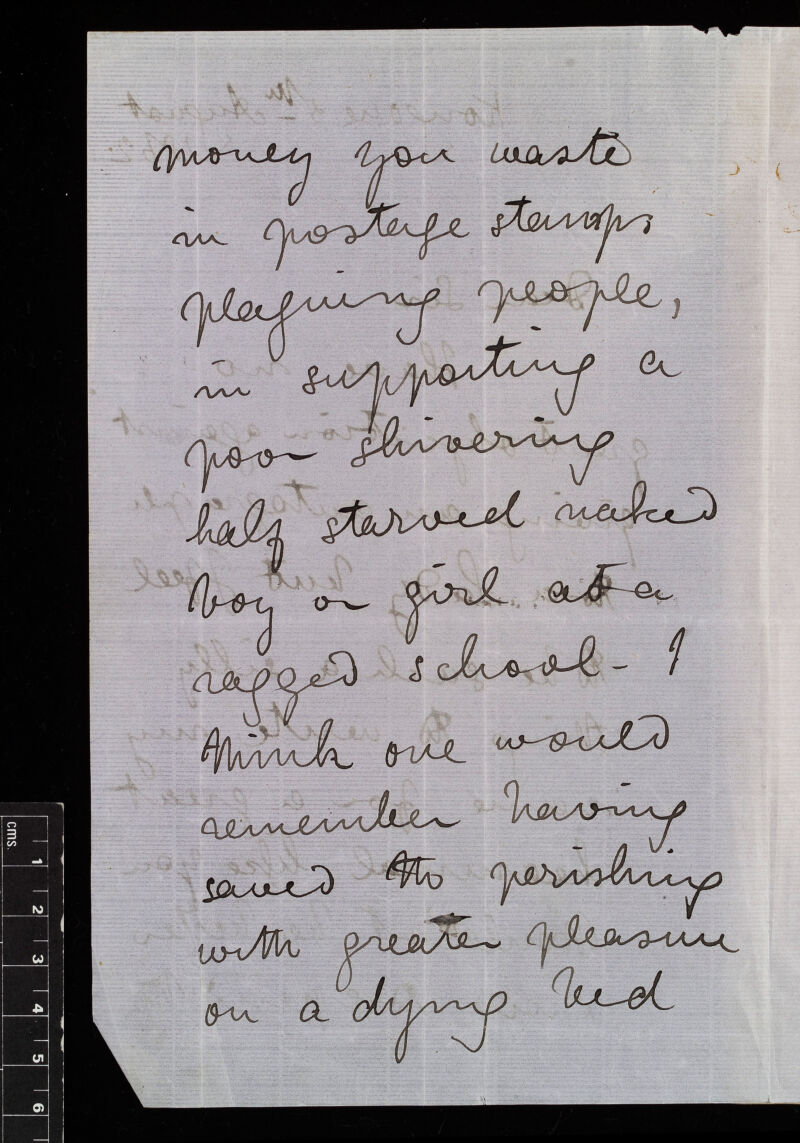 money you waste
in postage stamps
plaguing people,
in supporting a
poor shivering
half starved naked
boy or girl at a
ragged school - I
think one would
remember having
saved the perishing
with greater pleasure
on a dying bed
cms.
1
2
3
4
5
6